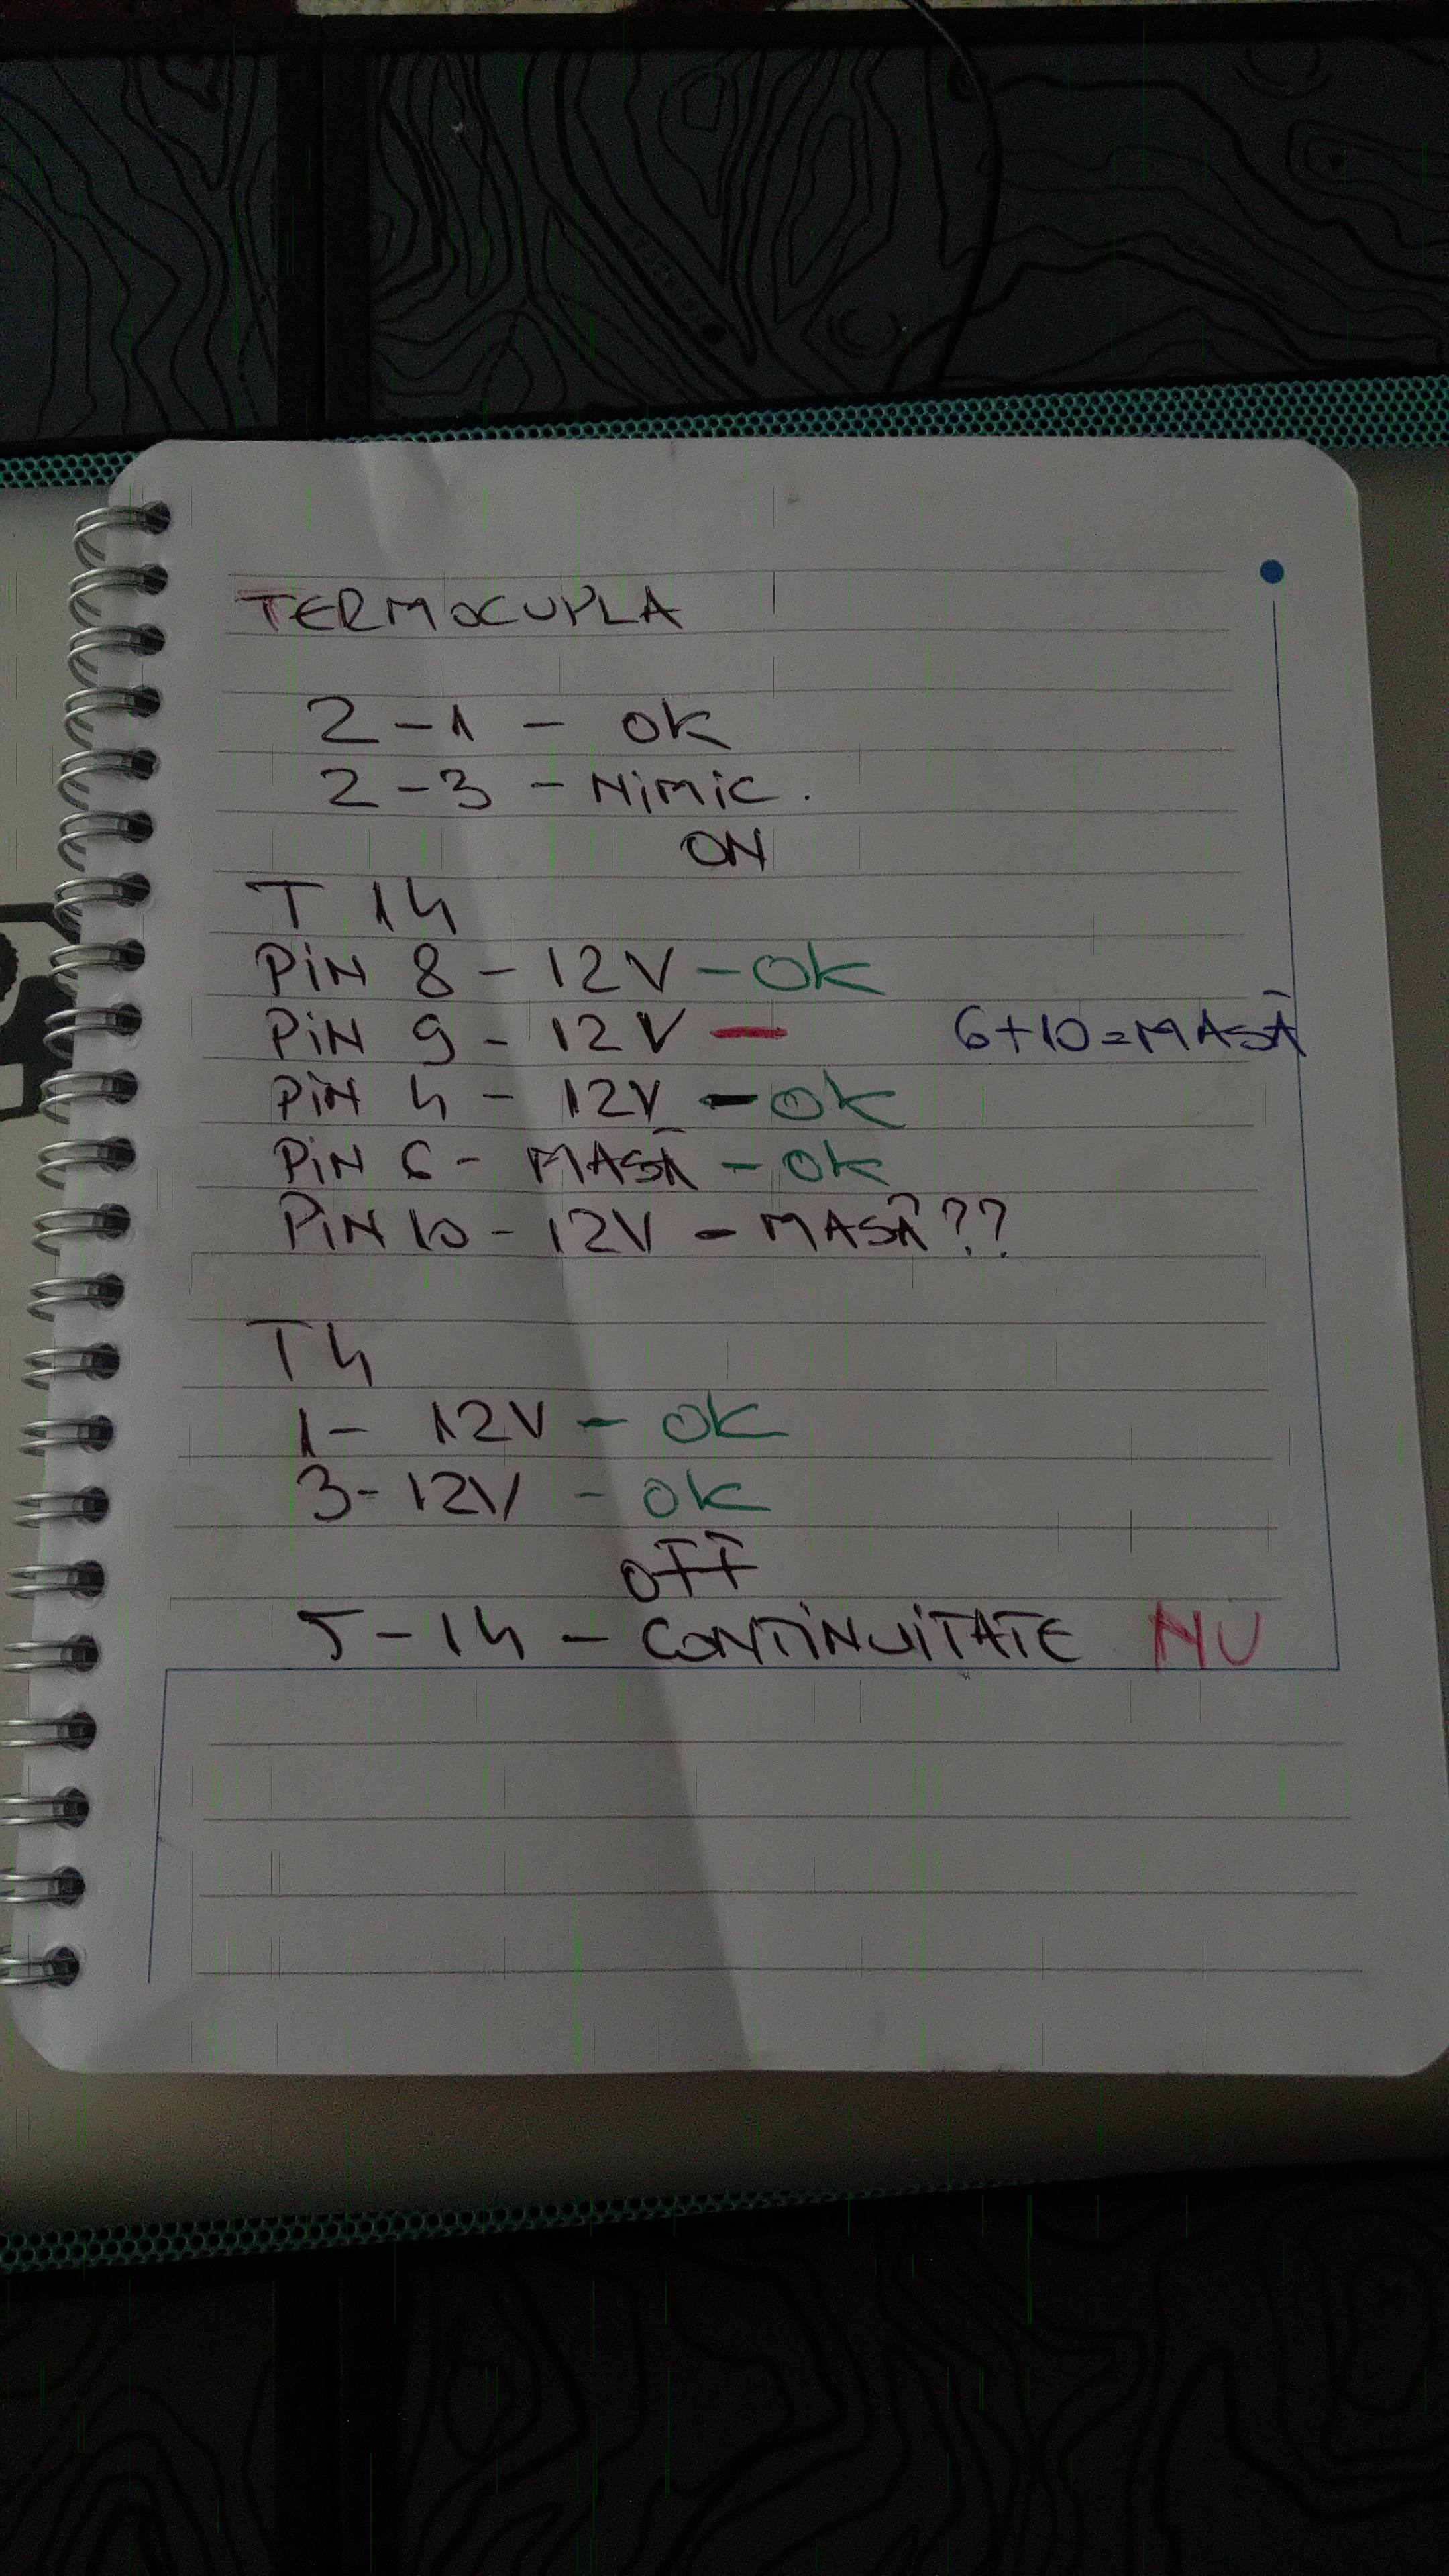 TERMOCUPLA
2-1 - OK
2-3 - NiMiC.
ON
T 14
PiN 8 - 12V - OK
PiN 9 - 12V - 6+10=MASĂ
PiN 4 - 12V - OK
PiN 6 - MASĂ - OK
PiN 10 - 12V - MASĂ??
T4
1- 12V - OK
3- 12V - OK
OFF
5-14 - CONTiNUiTATE NU